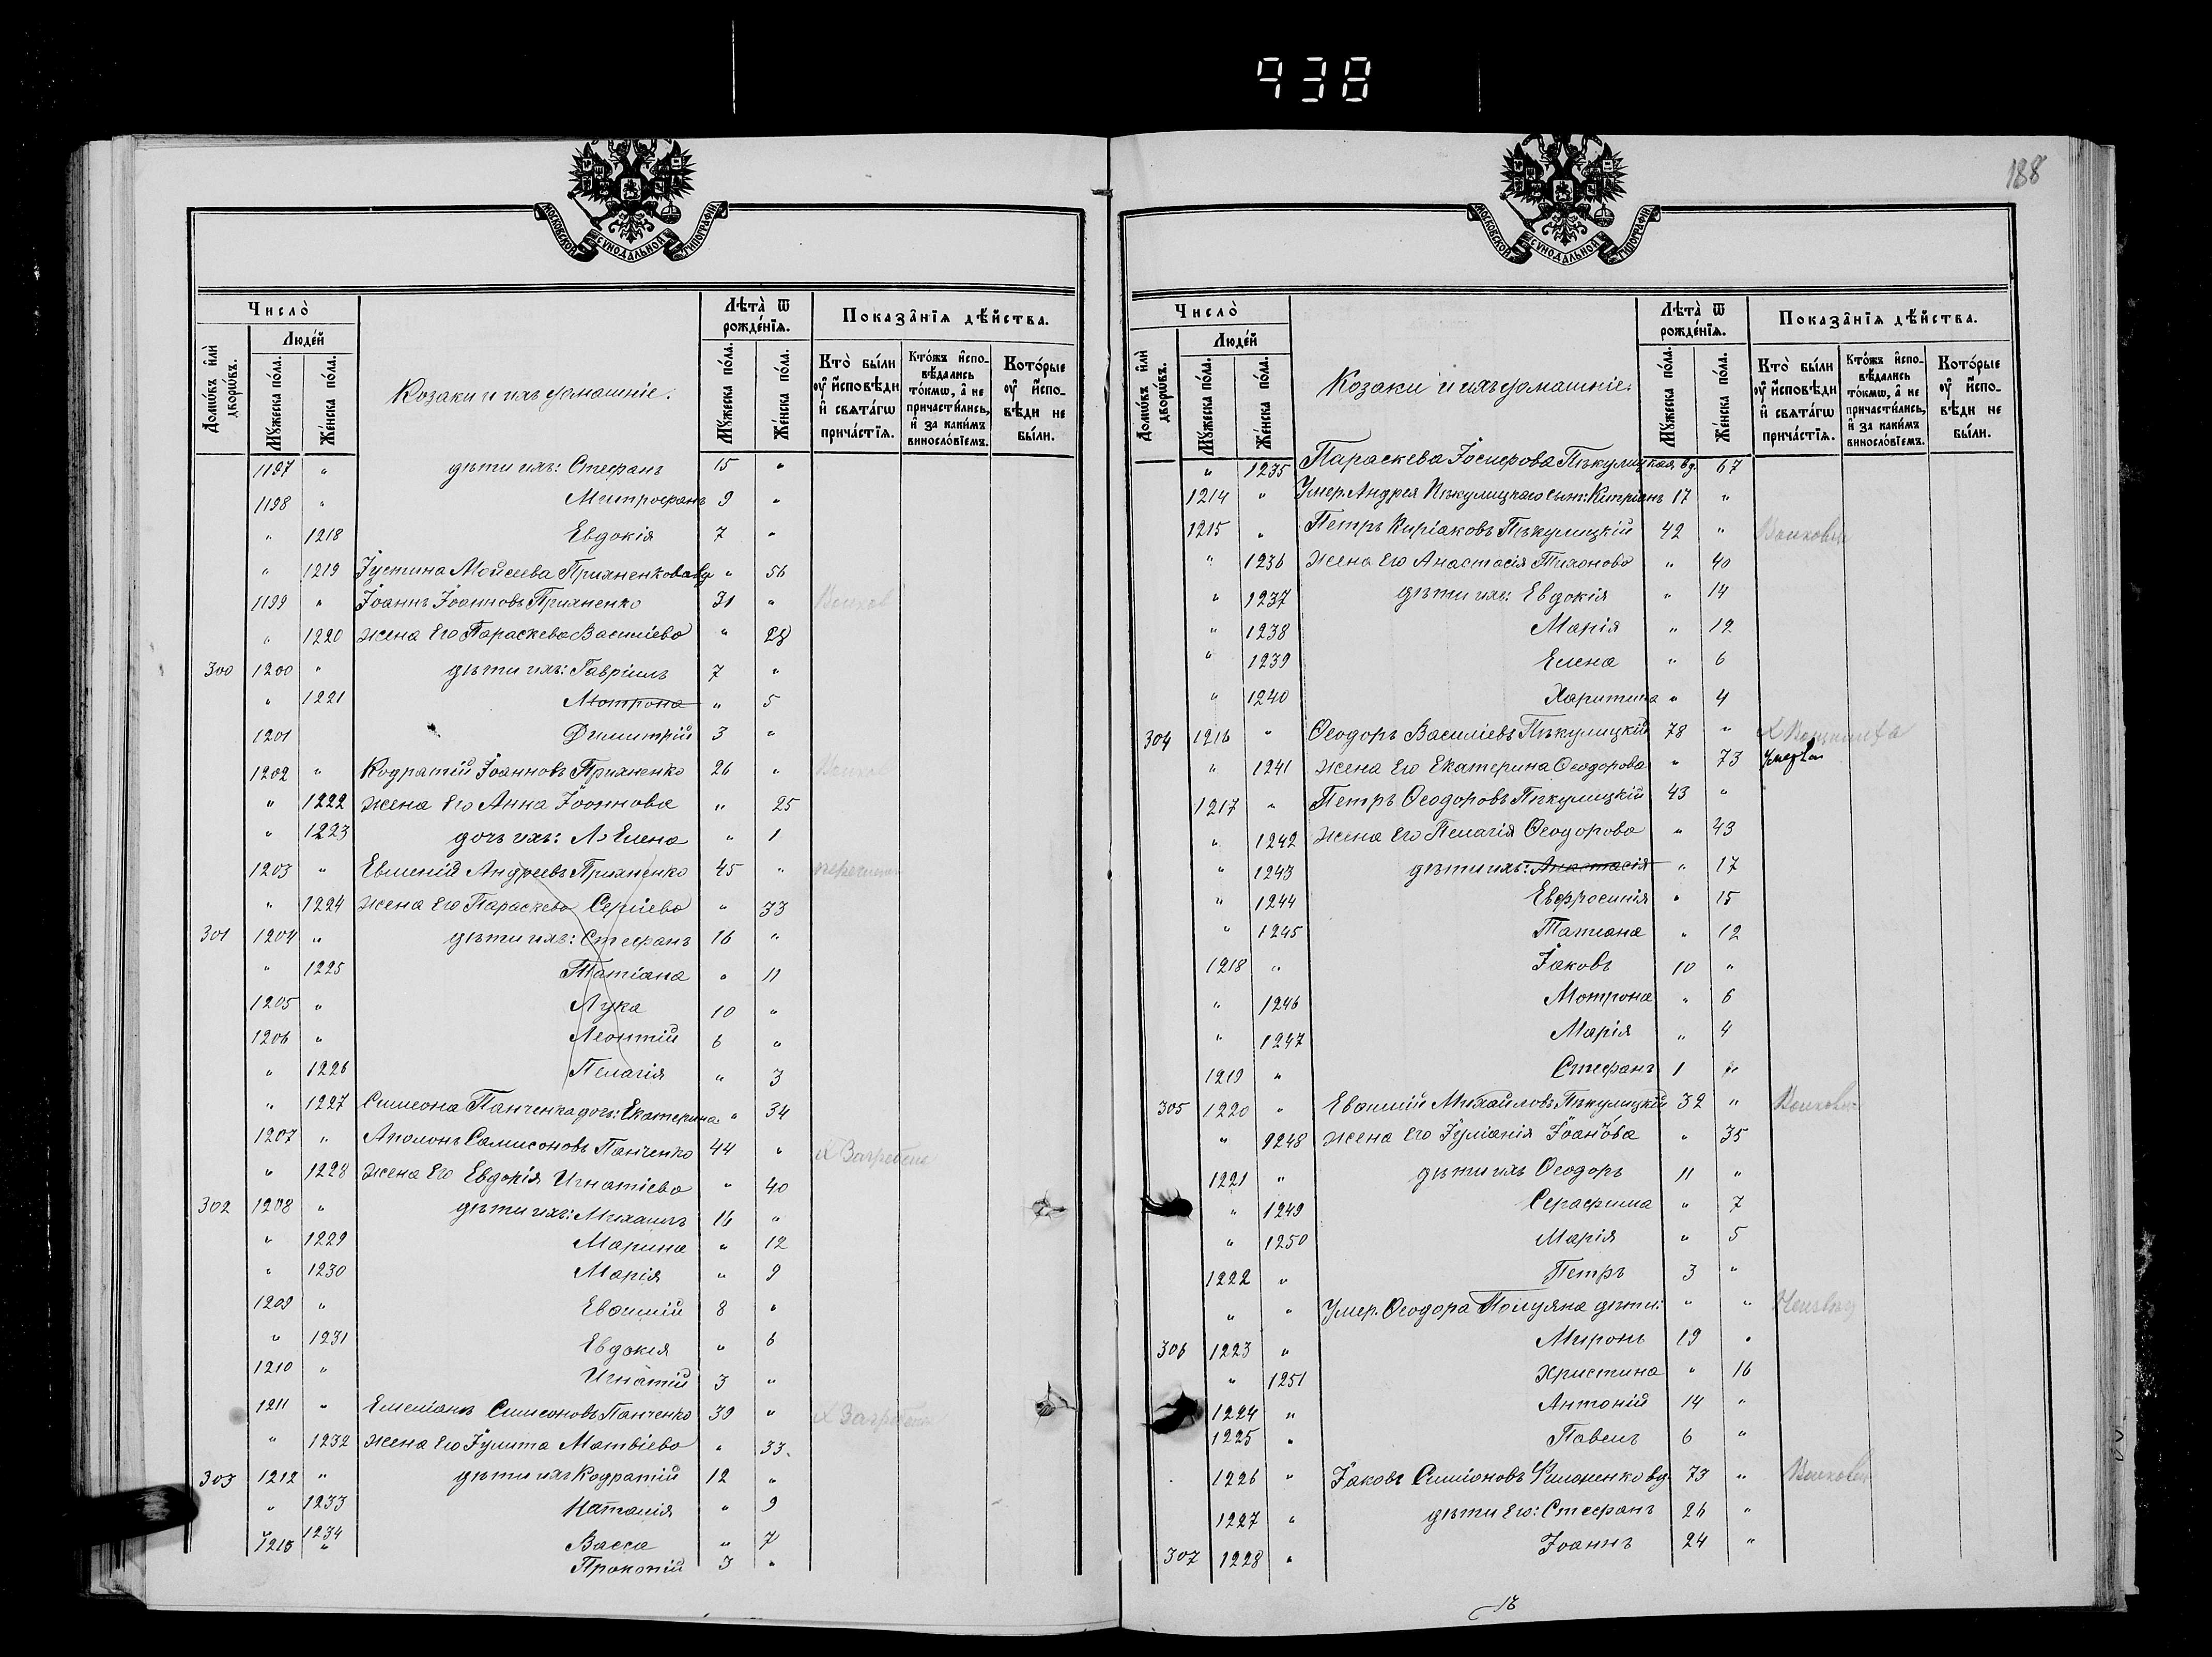 938
188
МОСКОВСКОЙ СУНОДАЛЬНОЙ ТИПОГРАФІИ
Число̀
Людей
Домѡвъ и҆лѝ дворѡвъ.
Мꙋжеска по́ла.
Же́нска по́ла.
Козаки и ихъ домашніе.
Лѣта̀ ѿ рожде́нїѧ.
Мꙋжеска по́ла.
Же́нска по́ла.
Показа̂нїѧ дѣ́йства.
Кто̀ бы́ли ᲂу҆ и҆сповѣди и҆ свѧта́гѡ прича́стїѧ.
Кто́жъ и҆спо-вѣ́дались то́кмѡ, а҆ не причасти́лись, и҆ за каки́мъ винослов́їемъ.
Кото́рые ᲂу҆ и҆спо-вѣди не бы́ли.
1197 " дѣти ихъ: Стефанъ 15 "
1198 " Митрофанъ 9 "
" 1218 Евдокія 7 "
" 1219 Іустина Моисеева Прихненкова вд " 56
1199 " Іоаннъ Іоанновъ Прихненко 31 "
" 1220 жена Его Параскева Василіева " 28
300 1200 " дѣти ихъ: Гавріилъ 7 "
" 1221 Мотрона " 5
1201 Димитрій 3 "
1202 " Кодратій Іоанновъ Прихненко 26 "
" 1222 жена Его Анна Іоаннова " 25
" 1223 дочь ихъ: Елена " 1
1203 " Евменій Андреевъ Прихненко 45 "
" 1224 жена Его Параскева Сергіева " 33
301 1204 " дѣти ихъ: Стефанъ 16 "
" 1225 Татіана " 11
1205 " Лука 10 "
1206 " Леонтій 6 "
" 1226 Пелагія " 3
" 1227 Симеона Панченка дочь: Екатерина " 34
1207 " Аполонъ Самисоновъ Панченко 44 "
" 1228 жена Его Евдокія Игнатіева " 40
302 1208 " дѣти ихъ: Михаилъ 16 "
" 1229 Марина " 12
" 1230 Марія " 9
1209 " Евфимій 8 "
" 1231 Евдокія " 6
1210 " Игнатій 3 "
1211 " Емеліанъ Симеоновъ Панченко 39 "
" 1232 жена Его Іулита Матвіева " 33.
303 1212 " дѣти ихъ Кодратій 12 "
" 1233 Наталія " 9
" 1234 Васса " 7
1213 " Прокопій 3 "
МОСКОВСКОЙ СУНОДАЛЬНОЙ ТИПОГРАФІИ
Число̀
Людей
Домѡвъ и҆лѝ дворѡвъ.
Мꙋжеска по́ла.
Же́нска по́ла.
Козаки и ихъ домашніе.
Лѣта̀ ѿ рожде́нїѧ.
Мꙋжеска по́ла.
Же́нска по́ла.
Показа̂нїѧ дѣ́йства.
Кто̀ бы́ли ᲂу҆ и҆сповѣди и҆ свѧта́гѡ прича́стїѧ.
Кто́жъ и҆спо-вѣ́дались то́кмѡ, а҆ не причасти́лись, и҆ за каки́мъ винослов́їемъ.
Кото́рые ᲂу҆ и҆спо-вѣди не бы́ли.
" 1235 Параскева Іосифова Пѣкулицкая вд. 67
1214 " Умер. Андрея Пѣкулицкаго сынъ: Кипріанъ 17 "
1215 " Петръ Киріаковъ Пѣкулицкій 42 "
" 1236 жена Его Анастасія Тихонова " 40
" 1237 дѣти ихъ: Евдокія " 14
" 1238 Марія " 12
" 1239 Елена " 6
" 1240 Харитина " 4
304 1216 " Ѳеодоръ Василіевъ Пѣкулицкій 78 "
" 1241 жена Его Екатерина Ѳеодорова " 73
1217 " Петръ Ѳеодоровъ Пѣкулицкій 43 "
" 1242 жена Его Пелагія Ѳеодорова " 43
" 1243 дѣти ихъ: Анастасія " 17
" 1244 Евфросинія " 15
" 1245 Татиана " 12
1218 " Іаковъ 10 "
" 1246 Мотрона " 6
" 1247 Марія " 4
1219 " Стефанъ 1 "
305 1220 " Евфимій Михайловъ Пѣкулицкій 32 "
" 9248 жена Его Іуліанія Іоанова " 35
1221 " дѣти ихъ Ѳеодоръ 11 "
" 1249 Серафима " 7
" 1250 Марія " 5
1222 " Петръ 3 "
" " Умер. Ѳеодора Полуяна дѣти: " "
306 1223 " Миронъ 19 "
" 1251 Христина " 16
1224 " Антоній 14 "
1225 " Павелъ 6 "
1226 " Іаковъ Симіоновъ Филоненко вд 73 "
1227 " дѣти Его: Стефанъ 26 "
307 1228 " Іоаннъ 24 "